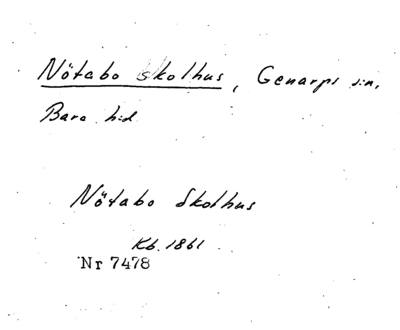 Nötabo skolhus, Genarps s:n,
Bara h:d
Nötabo Skolhus
Kb. 1861
Nr 7478